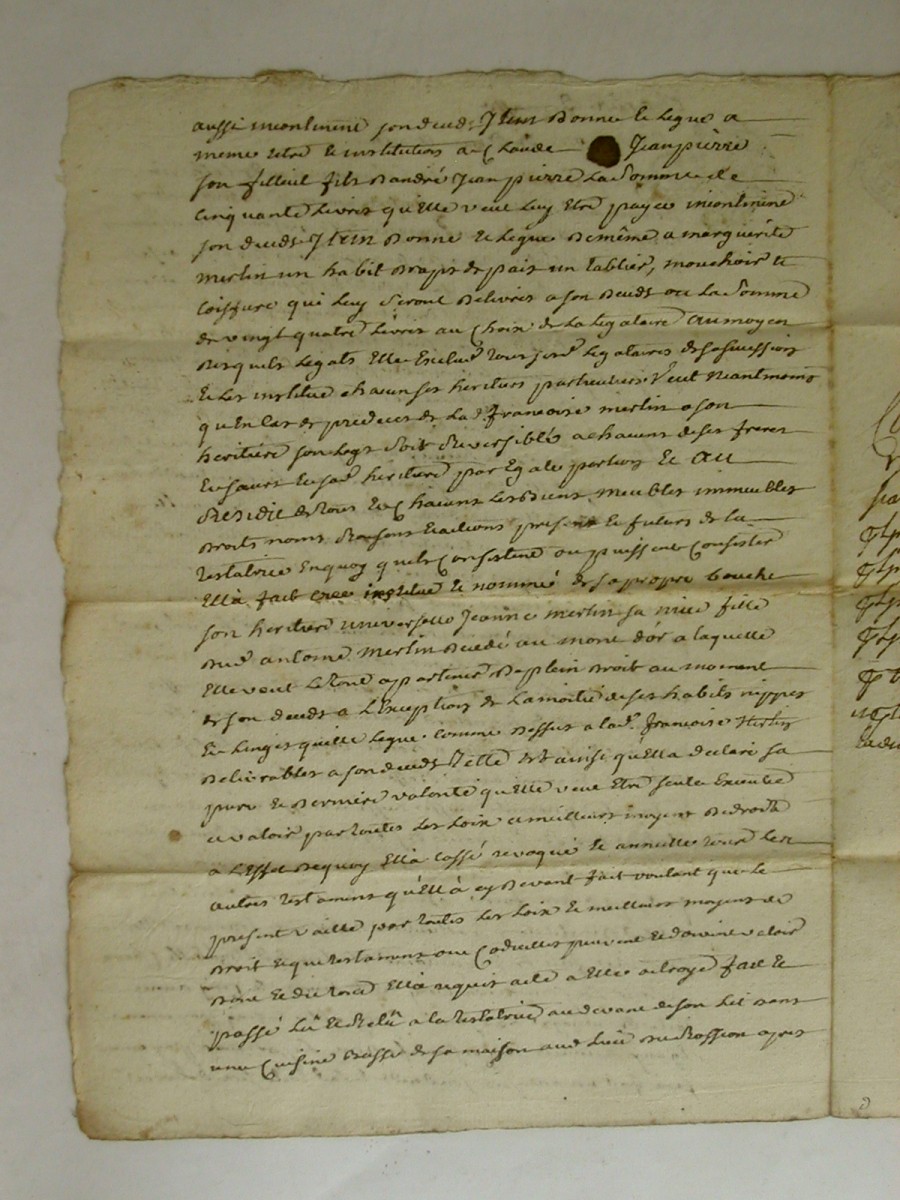 aussi incontinent son deceds Item Donne et Legue a
meme titre et institution a Claude Jean pierre
son filleul fils D'andré Jean pierre La Somme de
Cinquante Livres qu'Elle veut Luy Etre payée incontinent
son deceds Item Donne et Legue De même a marguerite
merlin un habit Drap de païs un tablier, mouchoir et
Coiffure qui Luy Seront Delivrés a son Deceds ou La Somme
de vingt quatre Livres au Choix de La legataire au moyen
Desquels Legats Elle Exclue tous sesd. Legataires de sa succession
Et Les institue chacun ses heritiers particuliers Veut neantmoins
qu'En Cas de predeces de Lad. francoise merlin a son
heritiere son Legs soit Reversible a chacuns de ses freres
Et sœurs Et sad. heritiere par Egales portions Et au
Residu de tous Et Chacuns Ses Biens meubles immeubles
Droits noms Raisons Et actions present Et futurs de la
testatrice En quoy qu'ils Consistent ou puissent Consister
Ella fait cree institué Et nommé de sa propre bouche
son heritiere universelle Jeanne merlin sa niece fille
Dud. antoine Merlin Decedé au mont d'or a laquelle
Elle veut Le tout appartenir De plein Droit au moment
de son deceds a L'Exception de La moitié de ses habits nippes
Et Linges qu'elle Legue comme Dessus a lad. francoise Merlin
Delivrables a son deceds telle Est ainsi qu'Ella declaré sa
pure Et Derniere volonté qu'Elle veut Etre seule Executée
et valoir par toutes Les Loix et meilleurs moyens De droits
a L'Effet De quoy Ella cassé revoqué Et annulle tous Les
autres testaments qu'Ell'a cy Devant fait voulant que Le
present vaille par toutes Les Loix Et meilleurs moyens de
Droit Et que testaments ou Codicilles peuvent Et doivent valoir
Dont Et du tout Ella requit acte a Elle octroyé fait Et
passé Lû Et Relû a la testatrice au devant de son Lit dans
une Cuisine Basse de sa maison aud. Lieu Du Rossion apres